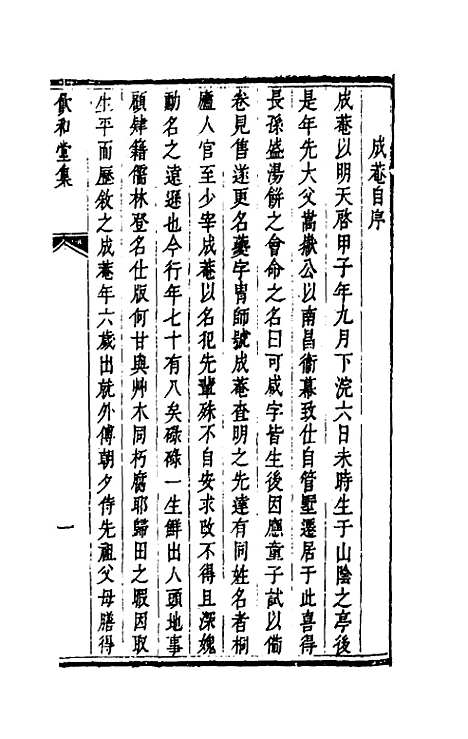 成菴自序
成菴以明天啓甲子年九月下浣六日未時生于山陰之亭後
是年先大父嵩嶽公以南昌衛幕致仕自管墅遷居于此喜得
長孫盛湯餅之會命之名曰可咸字皆生後因應童子試以備
卷見售遂更名夔字胄師號成菴査明之先達有同姓名者桐
廬人官至少宰成菴以名犯先輩殊不自安求改不得且深媿
動名之遠遜也今行年七十有八矣碌碌一生鮮出人頭地事
顧肄籍儒林登名仕版何甘與艸木同朽腐耶歸田之暇因取
生平而歷敘之成菴年六歲出就外傅朝夕侍先祖父母膳得
飲和堂集
一